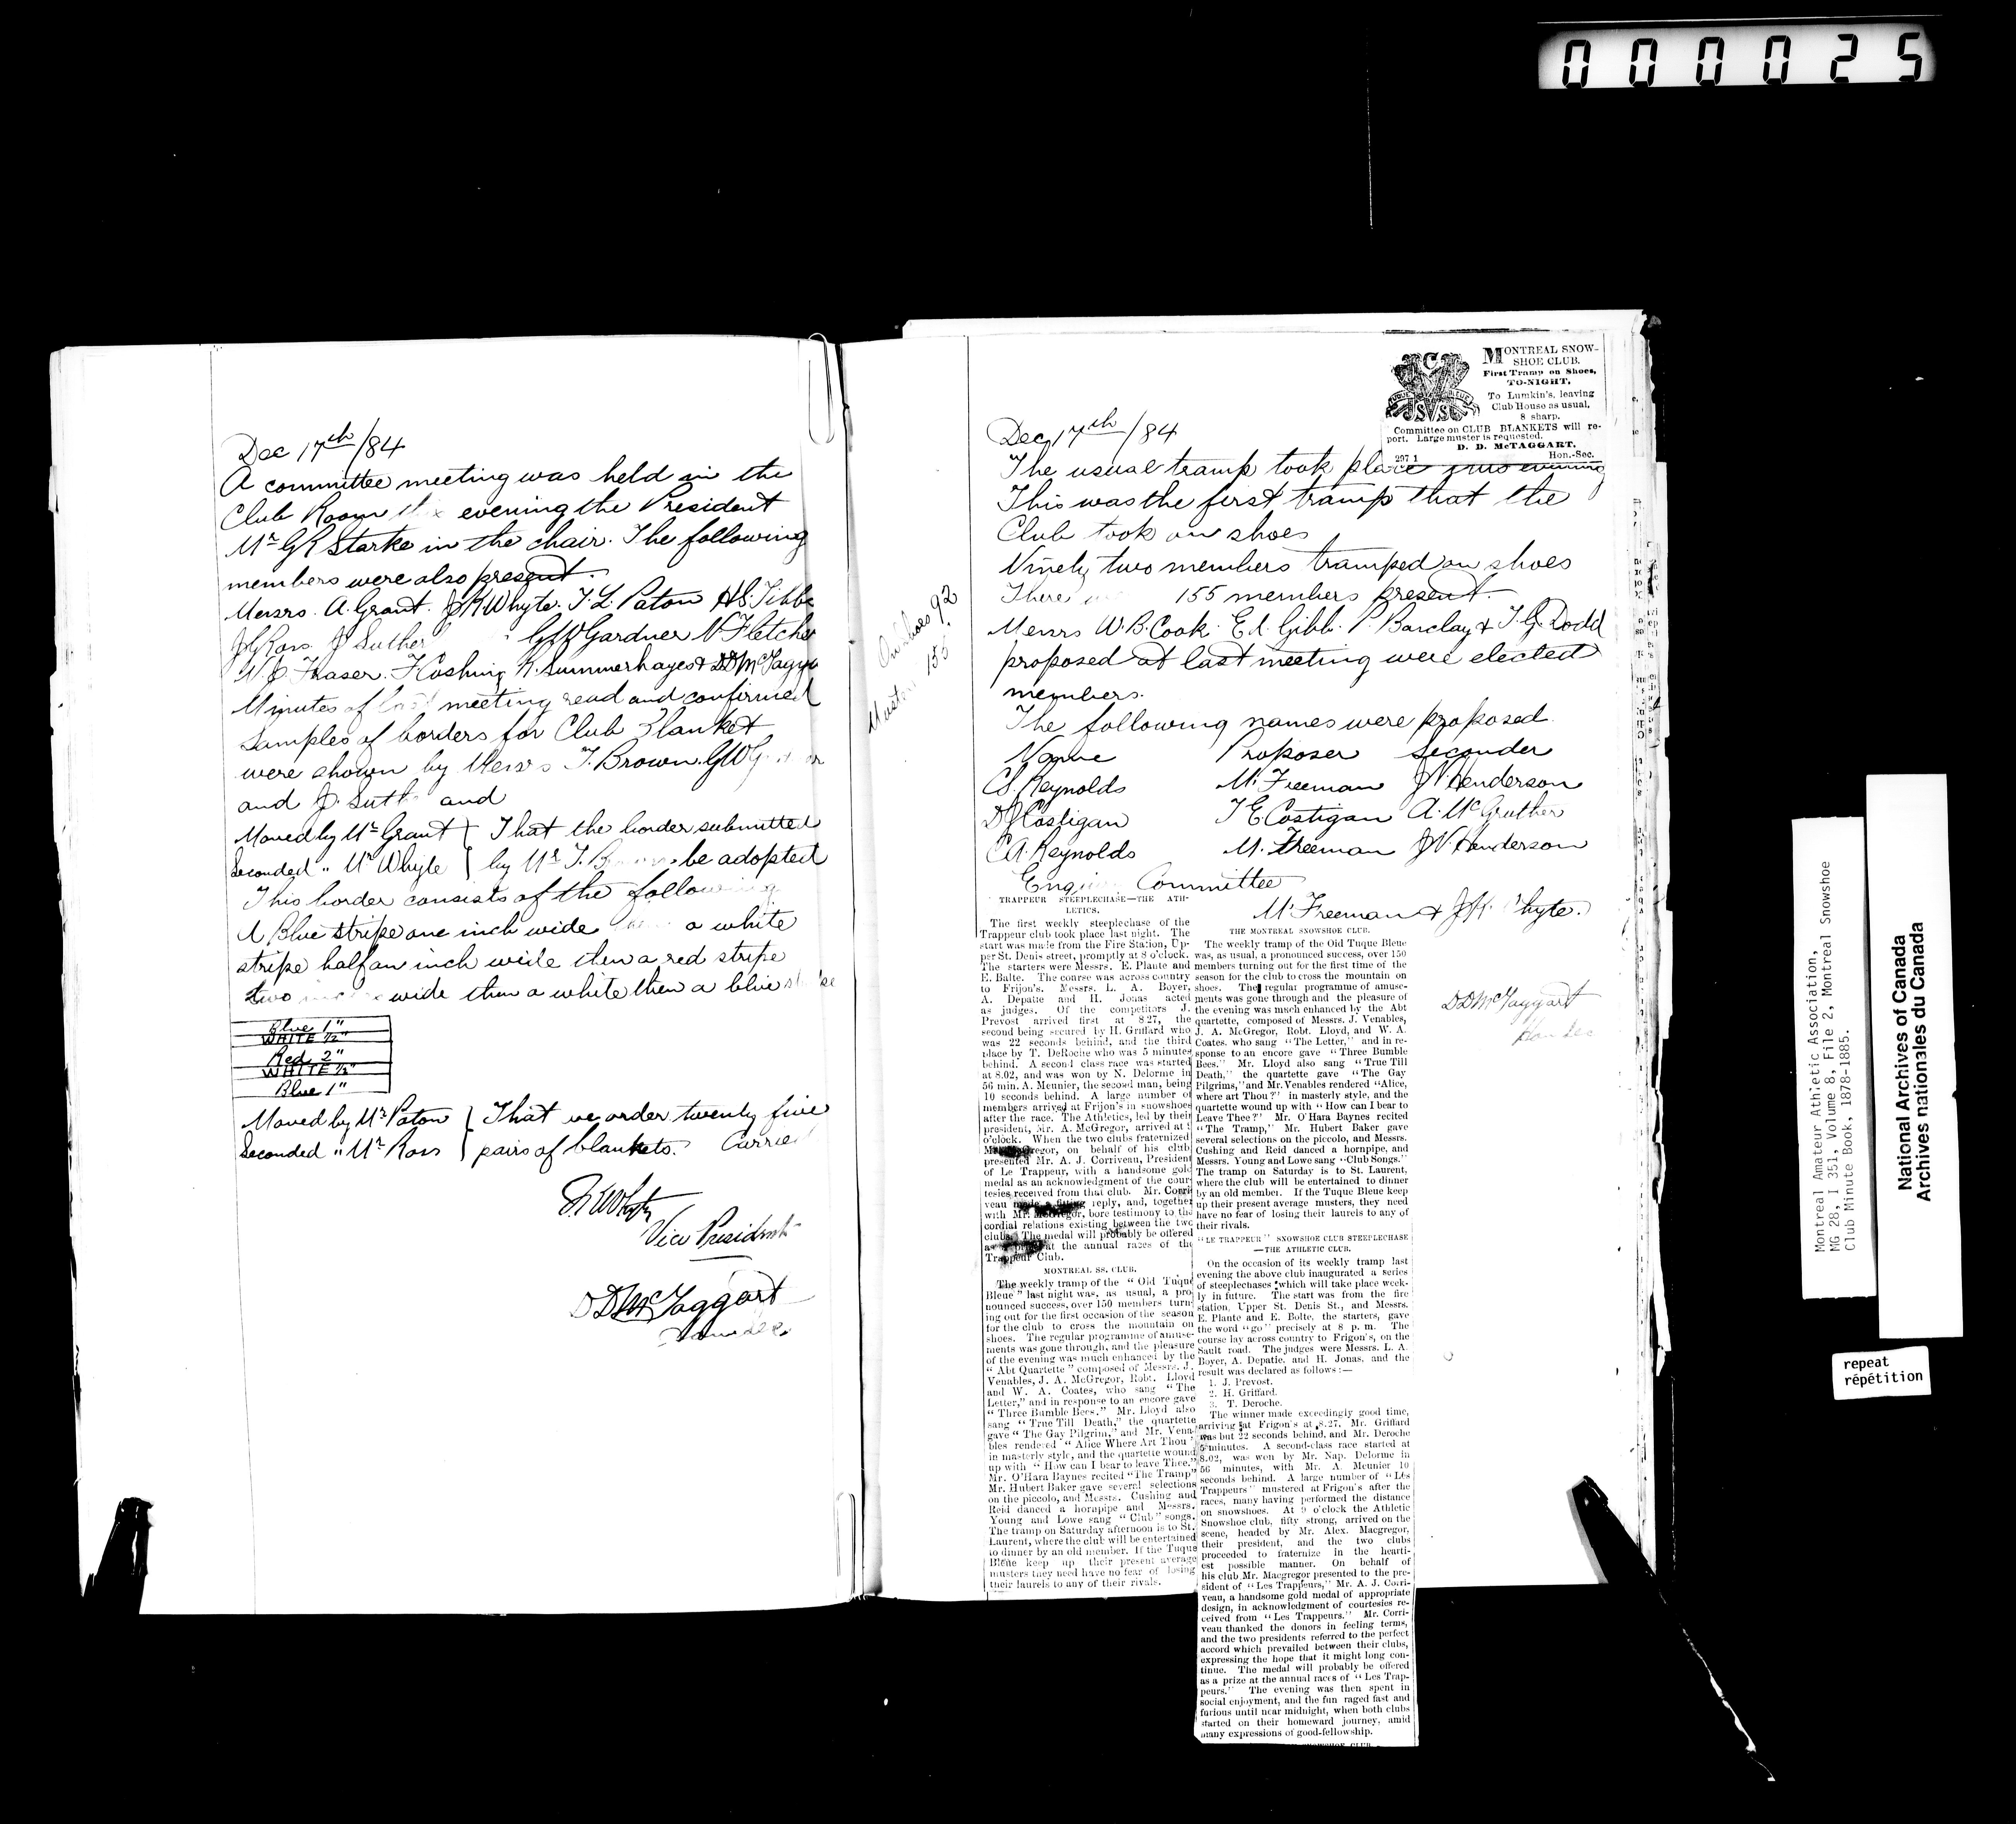 000025
Dec 17th/84
A committee meeting was held in the
Club Room evening the President
Mr G R Starke in the chair. The following
members were also present.
Messrs. A. Grant. J K Whyte. T. L. Paton
J G Ross. J Suther G W Gardner N Fletcher
W. C Fraser. F Cushing R. Summerhayes & D D McTagga
Minutes of last meeting read and confirmed
Samples of borders for Club Blanket
were shown by Messrs T. Brown. G W
and J. Suth and
Moved by Mr Grant } That the border submitted
Seconded " Mr Whyte } by Mr T. B be adopted
This border consists of the following
A Blue stripe one inch wide a white
stripe half an inch wide then a red stripe
two wide then a white then a blue
Blue 1"
WHITE 1/2"
Red 2"
WHITE 1/2"
Blue 1"
Moved by Mr Paton } That we order twenty five
Seconded " Mr Ross } pairs of blankets. Carried
Vice President
D D McTaggart
On shoes 92
Muster 155
MONTREAL SNOW-
SHOE CLUB.
First Tramp on Shoes,
TO-NIGHT,
To Lumkin's, leaving
Club House as usual,
8 sharp.
Committee on CLUB BLANKETS will re-
port. Large muster is requested.
D. D. McTAGGART,
297 1 Hon.-Sec.
Dec 17th/84
The usual tramp took place this evening
This was the first tramp that the
Club took on shoes
Ninety two members tramped on shoes
There 155 members present.
Messrs W. B. Cook. E A. Gibb. P. Barclay & T. G. Dodd
proposed at last meeting were elected
members.
The following names were proposed
Name Proposer Seconder
C S. Reynolds M. Freeman J V. Henderson
D J Costigan T E Costigan A. McGruther
C A. Reynolds M. Freeman J V. Henderson
Committee
M. Freeman & J K. Whyte.
D D McTaggart
Hon Sec
TRAPPEUR STEEPLECHASE—THE ATH-
LETICS.
The first weekly steeplechase of the
Trappeur club took place last night. The
start was made from the Fire Station, Up-
per St. Denis street, promptly at 8 o'clock.
The starters were Messrs. E. Plante and
E. Balte. The course was across country
to Frijon's. Messrs. L. A. Boyer,
A. Depatie and H. Jonas acted
as judges. Of the competitors J.
Prevost arrived first at 8.27, the
second being secured by H. Griffard who
was 22 seconds behind, and the third
place by T. DeRoche who was 5 minutes
behind. A second class race was started
at 8.02, and was won by N. Delorme in
56 min. A. Meunier, the second man, being
10 seconds behind. A large number of
members arrived at Frijon's in snowshoes
after the race. The Athletics, led by their
president, Mr. A. McGregor, arrived at
o'clock. When the two clubs fraternized
Mr. McGregor, on behalf of his club,
presented Mr. A. J. Corriveau, President
of Le Trappeur, with a handsome gold
medal as an acknowledgment of the cour-
tesies received from that club. Mr. Corri-
veau made a fitting reply, and, together
with Mr. McGregor, bore testimony to the
cordial relations existing between the two
clubs. The medal will probably be offered
as a prize at the annual races of the
Trappeur Club.
MONTREAL SS. CLUB.
The weekly tramp of the "Old Tuque
Bleue" last night was, as usual, a pro-
nounced success, over 150 members turn-
ing out for the first occasion of the season
for the club to cross the mountain on
shoes. The regular programme of amuse-
ments was gone through, and the pleasure
of the evening was much enhanced by the
"Abt Quartette" composed of Messrs. J.
Venables, J. A. McGregor, Robt. Lloyd
and W. A. Coates, who sang "The
Letter," and in response to an encore gave
"Three Bumble Bees." Mr. Lloyd also
sang "True Till Death," the quartette
gave "The Gay Pilgrim," and Mr. Vena-
bles rendered "Alice Where Art Thou"
in masterly style, and the quartette wound
up with "How can I bear to leave Thee."
Mr. O'Hara Baynes recited "The Tramp"
Mr. Hubert Baker gave several selections
on the piccolo, and Messrs. Cushing and
Reid danced a hornpipe and Messrs.
Young and Lowe sang "Club" songs.
The tramp on Saturday afternoon is to St.
Laurent, where the club will be entertained
to dinner by an old member. If the Tuque
Bleue keep up their present average
musters they need have no fear of losing
their laurels to any of their rivals.
THE MONTREAL SNOWSHOE CLUB.
The weekly tramp of the Old Tuque Bleue
was, as usual, a pronounced success, over 150
members turning out for the first time of the
season for the club to cross the mountain on
shoes. The regular programme of amuse-
ments was gone through and the pleasure of
the evening was much enhanced by the Abt
quartette, composed of Messrs. J. Venables,
J. A. McGregor, Robt. Lloyd, and W. A.
Coates. who sang "The Letter," and in re-
sponse to an encore gave "Three Bumble
Bees." Mr. Lloyd also sang "True Till
Death," the quartette gave "The Gay
Pilgrims," and Mr. Venables rendered "Alice,
where art Thou?" in masterly style, and the
quartette wound up with "How can I bear to
Leave Thee?" Mr. O'Hara Baynes recited
"The Tramp," Mr. Hubert Baker gave
several selections on the piccolo, and Messrs.
Cushing and Reid danced a hornpipe, and
Messrs. Young and Lowe sang "Club Songs."
The tramp on Saturday is to St. Laurent,
where the club will be entertained to dinner
by an old member. If the Tuque Bleue keep
up their present average musters, they need
have no fear of losing their laurels to any of
their rivals.
"LE TRAPPEUR" SNOWSHOE CLUB STEEPLECHASE
—THE ATHLETIC CLUB.
On the occasion of its weekly tramp last
evening the above club inaugurated a series
of steeplechases which will take place week-
ly in future. The start was from the fire
station, Upper St. Denis St., and Messrs.
E. Plante and E. Bolte, the starters, gave
the word "go" precisely at 8 p. m. The
course lay across country to Frigon's, on the
Sault road. The judges were Messrs. L. A.
Boyer, A. Depatie, and H. Jonas, and the
result was declared as follows:—
1. J. Prevost.
2. H. Griffard.
3. T. Deroche.
The winner made exceedingly good time,
arriving at Frigon's at 8.27. Mr. Griffard
was but 22 seconds behind, and Mr. Deroche
5 minutes. A second-class race started at
8.02, was won by Mr. Nap. Delorme in
56 minutes, with Mr. A. Meunier 10
seconds behind. A large number of "Les
Trappeurs" mustered at Frigon's after the
races, many having performed the distance
on snowshoes. At 9 o'clock the Athletic
Snowshoe club, fifty strong, arrived on the
scene, headed by Mr. Alex. Macgregor,
their president, and the two clubs
proceeded to fraternize in the hearti-
est possible manner. On behalf of
his club Mr. Macgregor presented to the pre-
sident of "Les Trappeurs," Mr. A. J. Corri-
veau, a handsome gold medal of appropriate
design, in acknowledgment of courtesies re-
ceived from "Les Trappeurs." Mr. Corri-
veau thanked the donors in feeling terms,
and the two presidents referred to the perfect
accord which prevailed between their clubs,
expressing the hope that it might long con-
tinue. The medal will probably be offered
as a prize at the annual races of "Les Trap-
peurs." The evening was then spent in
social enjoyment, and the fun raged fast and
furious until near midnight, when both clubs
started on their homeward journey, amid
many expressions of good-fellowship.
Montreal Amateur Athletic Association,
MG 28, I 351, Volume 8, File 2, Montreal Snowshoe
Club Minute Book, 1878-1885.
National Archives of Canada
Archives nationales du Canada
repeat
répétition